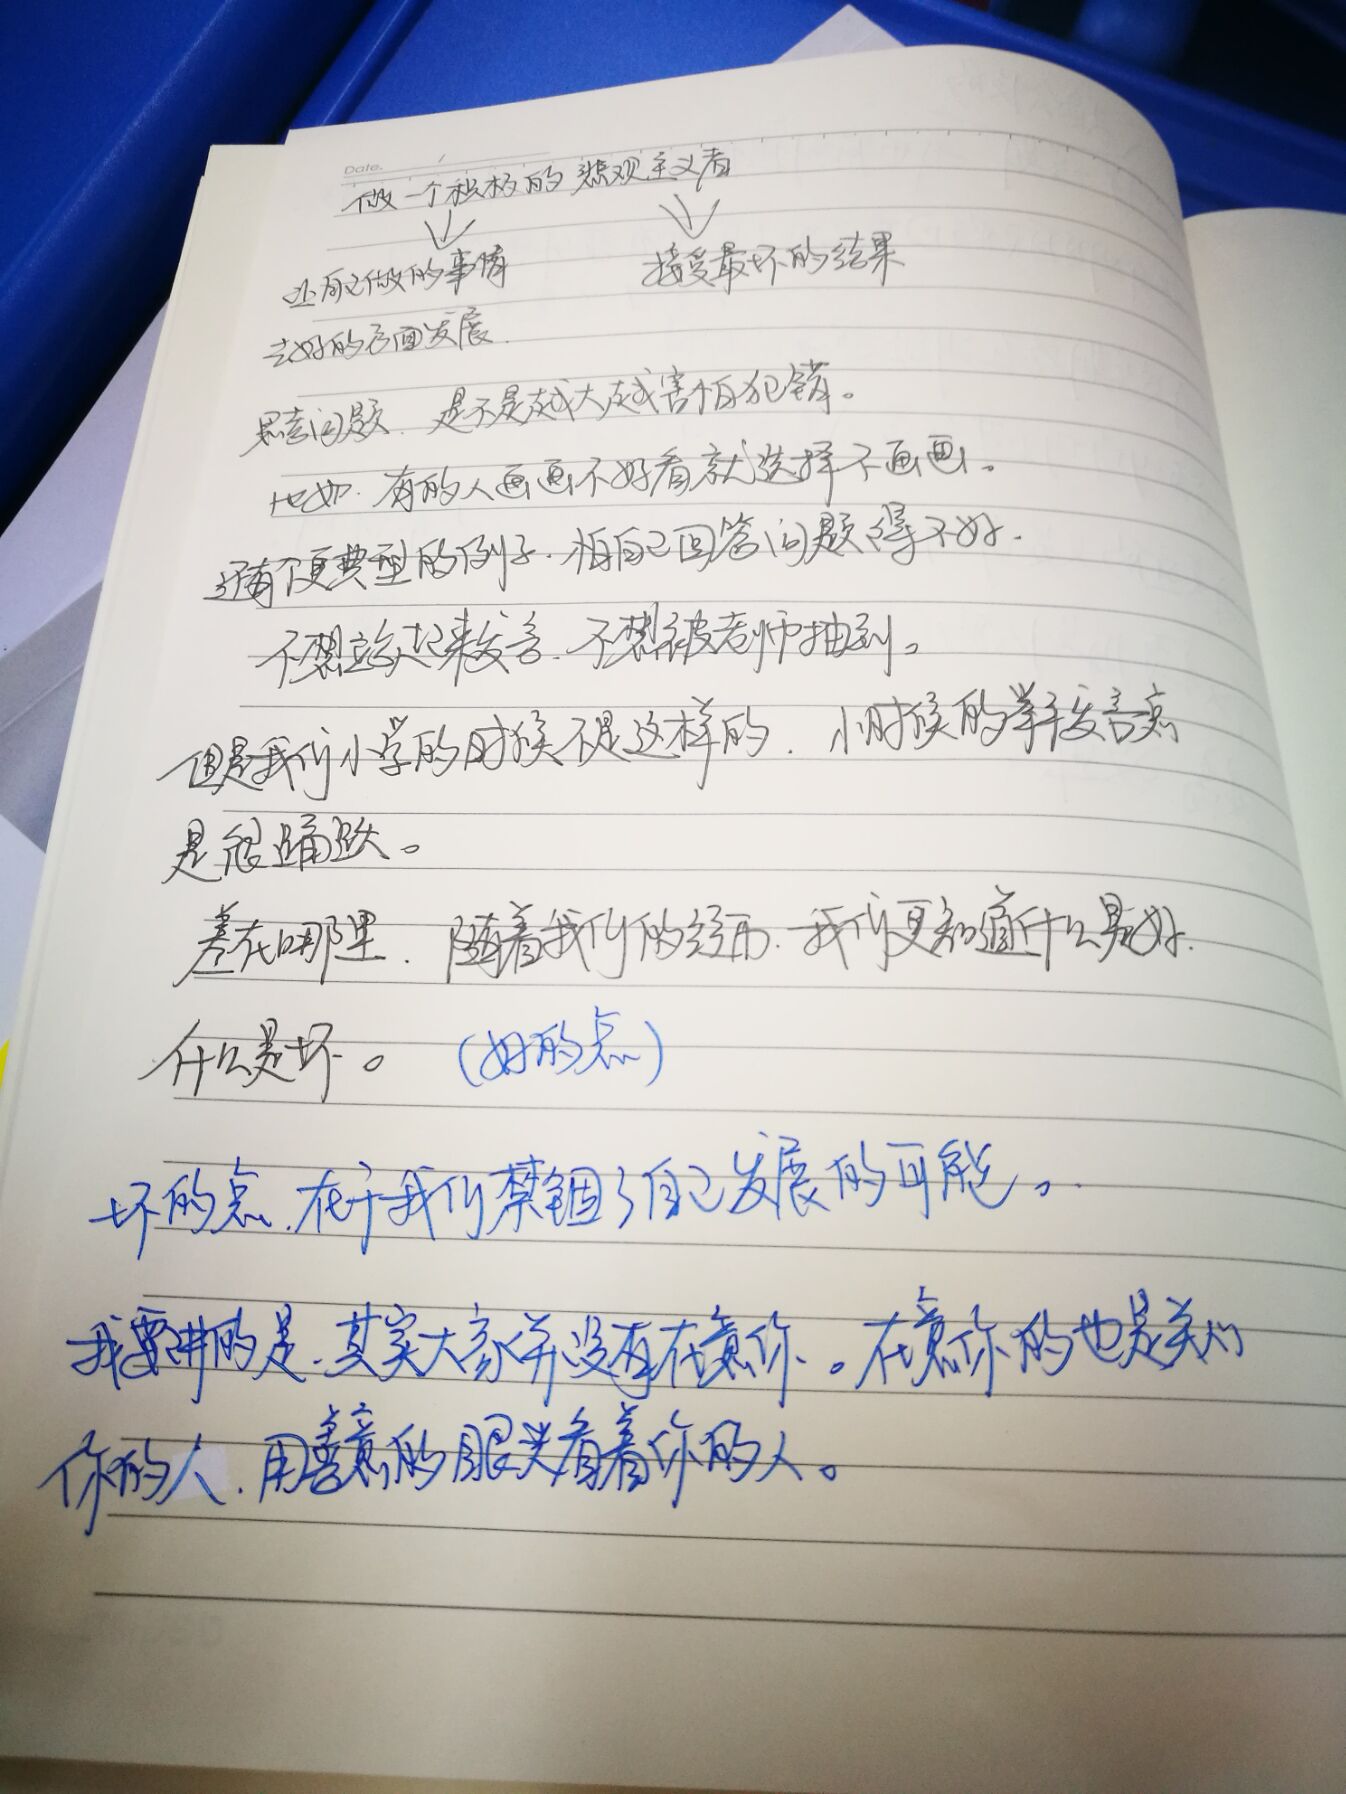 Date. /
做一个积极的悲观主义者
还有已做的事情 接受最坏的结果
去好的方面发展.
思考问题. 是不是越大越害怕犯错。
比如. 有的人画画不好看就选择不画画。
还有个更典型的例子. 怕自己回答问题得不好.
不想站起来发言. 不想被老师抽到。
但是我们小学的时候不是这样的. 小时候的举手发言总
是很踊跃。
差在哪里. 随着我们的经历. 我们更知道什么是好.
什么是坏。 (好的点)
坏的点. 在于我们禁锢了自己发展的可能。
我要讲的是. 其实大家并没有在意你。在意你的也是关心
你的人. 用善意的眼光看着你的人。